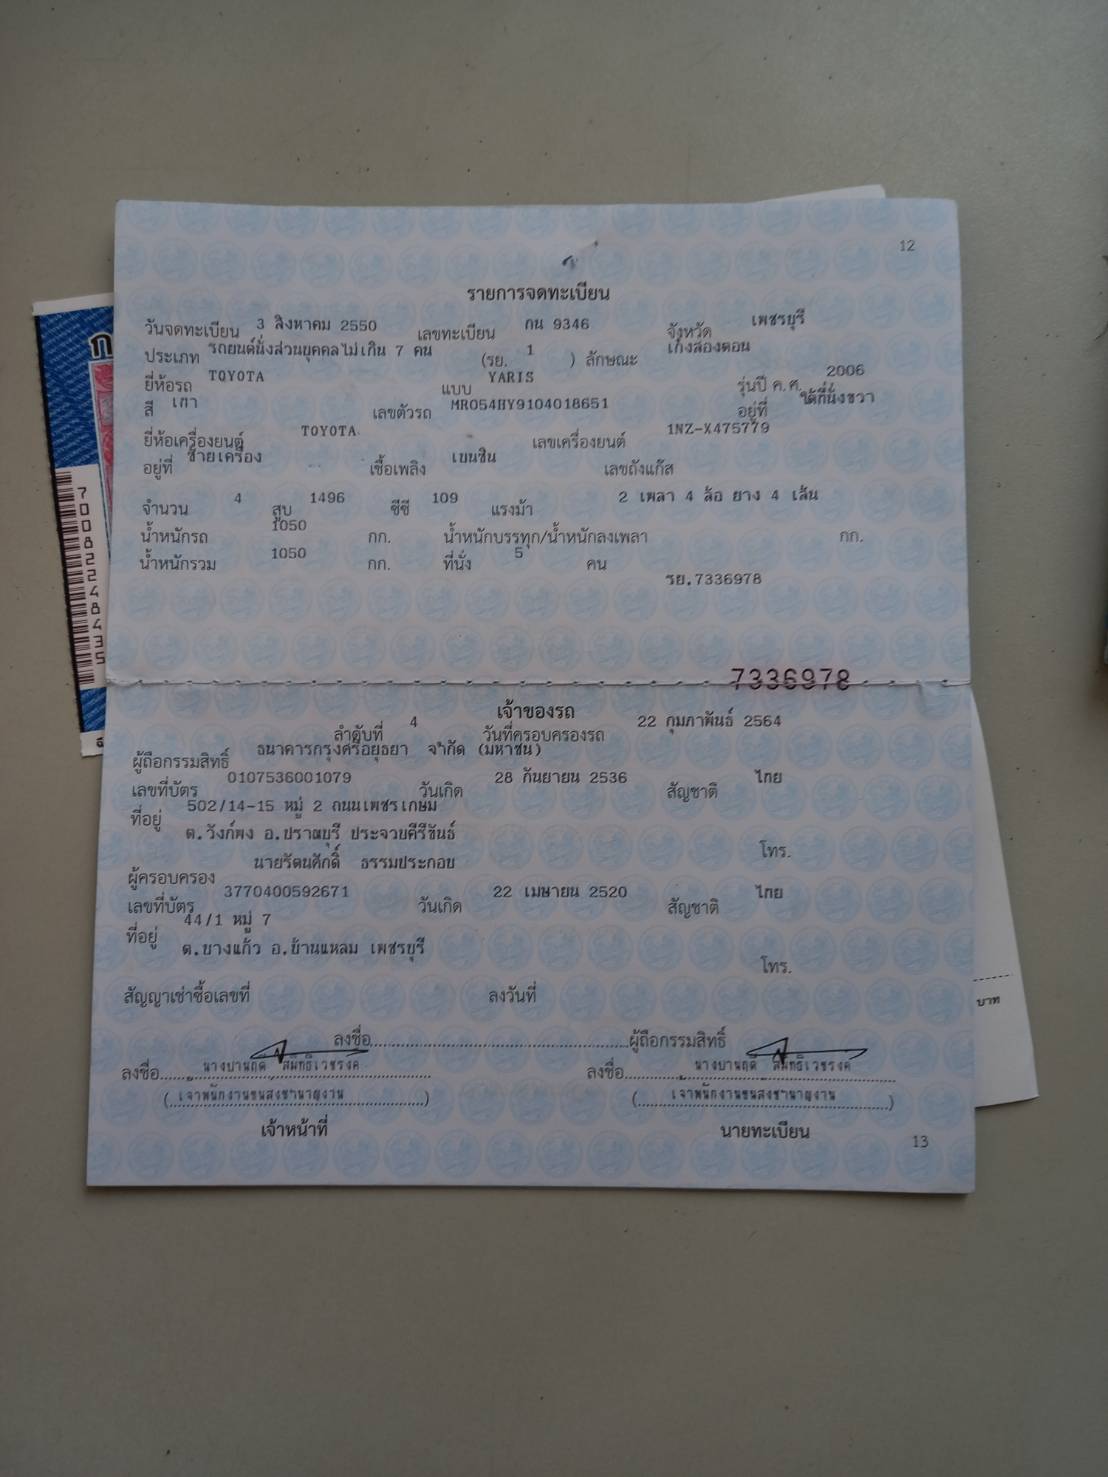 12
รายการจดทะเบียน
วันจดทะเบียน 3 สิงหาคม 2550 เลขทะเบียน กน 9346 จังหวัด เพชรบุรี
ประเภท รถยนต์นั่งส่วนบุคคลไม่เกิน 7 คน (รย. 1 ) ลักษณะ เก๋งสองตอน
ยี่ห้อรถ TOYOTA แบบ YARIS รุ่นปี ค.ศ. 2006
สี เทา เลขตัวรถ MR054HY9104018651 อยู่ที่ ใต้ที่นั่งขวา
ยี่ห้อเครื่องยนต์ TOYOTA เลขเครื่องยนต์ 1NZ-X475779
อยู่ที่ ซ้ายเครื่อง เชื้อเพลิง เบนซิน เลขถังแก๊ส
จำนวน 4 สูบ 1496 ซีซี 109 แรงม้า 2 เพลา 4 ล้อ ยาง 4 เส้น
น้ำหนักรถ 1050 กก. น้ำหนักบรรทุก/น้ำหนักลงเพลา กก.
น้ำหนักรวม 1050 กก. ที่นั่ง 5 คน
รย.7336978
7336978
เจ้าของรถ
ลำดับที่ 4 วันที่ครอบครองรถ 22 กุมภาพันธ์ 2564
ผู้ถือกรรมสิทธิ์ ธนาคารกรุงศรีอยุธยา จำกัด (มหาชน)
เลขที่บัตร 0107536001079 วันเกิด 28 กันยายน 2536 สัญชาติ ไทย
ที่อยู่ 502/14-15 หมู่ 2 ถนนเพชรเกษม
ต.วังก์พง อ.ปราณบุรี ประจวบคีรีขันธ์
โทร.
ผู้ครอบครอง นายรัตนศักดิ์ ธรรมประกอบ
เลขที่บัตร 3770400592671 วันเกิด 22 เมษายน 2520 สัญชาติ ไทย
ที่อยู่ 44/1 หมู่ 7
ต.บางแก้ว อ.บ้านแหลม เพชรบุรี
โทร.
สัญญาเช่าซื้อเลขที่ ลงวันที่
ลงชื่อ ผู้ถือกรรมสิทธิ์
ลงชื่อ ลงชื่อ
(เจ้าพนักงานขนส่งชำนาญงาน) (เจ้าพนักงานขนส่งชำนาญงาน)
เจ้าหน้าที่ นายทะเบียน
13
70082248435
บาท